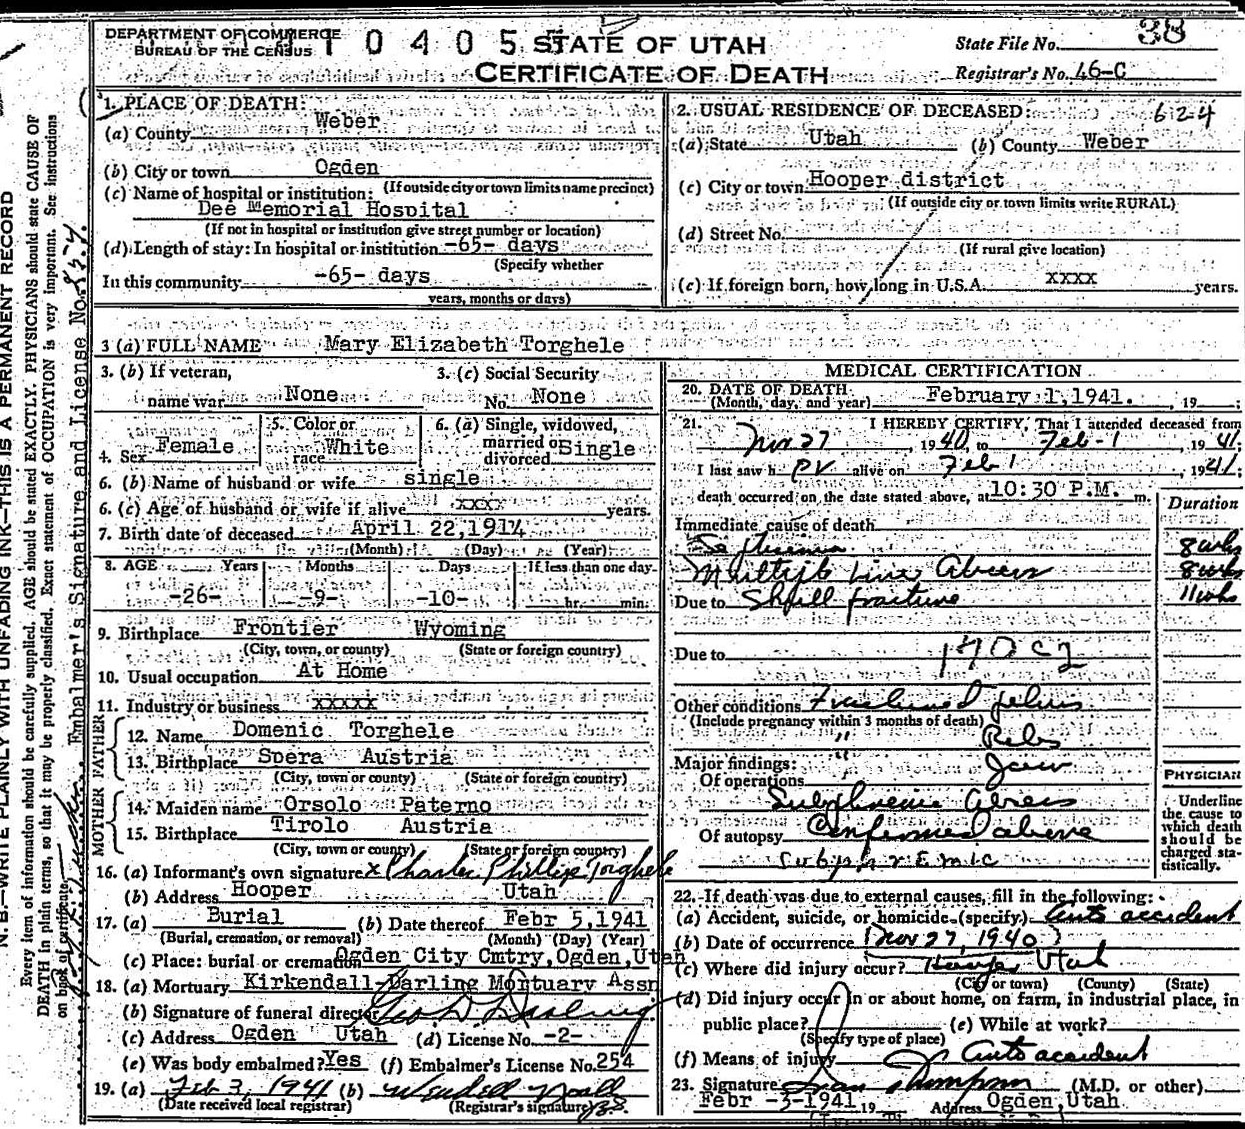 DEPARTMENT OF COMMERCE
BUREAU OF THE CENSUS
1 0 4 0 5
STATE OF UTAH
CERTIFICATE OF DEATH
State File No. 38
Registrar's No. 46-C
1. PLACE OF DEATH:
(a) County Weber
(b) City or town Ogden
(If outside city or town limits name precinct)
(c) Name of hospital or institution:
Dee Memorial Hospital
(If not in hospital or institution give street number or location)
(d) Length of stay: In hospital or institution -65- days
(Specify whether
In this community -65- days
years, months or days)
2. USUAL RESIDENCE OF DECEASED:
624
(a) State Utah (b) County Weber
(c) City or town Hooper district
(If outside city or town limits write RURAL)
(d) Street No.
(If rural give location)
(e) If foreign born, how long in U.S.A. XXXX years.
3 (a) FULL NAME Mary Elizabeth Torghele
3. (b) If veteran, name war None
3. (c) Social Security No. None
4. Sex Female
5. Color or race White
6. (a) Single, widowed, married or divorced Single
6. (b) Name of husband or wife single
6. (c) Age of husband or wife if alive XXX years.
7. Birth date of deceased April 22,1914
(Month) (Day) (Year)
8. AGE Years Months Days If less than one day
-26- -9- -10- hr. min.
9. Birthplace Frontier Wyoming
(City, town, or county) (State or foreign country)
10. Usual occupation At Home
11. Industry or business XXXXX
FATHER
12. Name Domenic Torghele
13. Birthplace Spera Austria
(City, town or county) (State or foreign country)
MOTHER
14. Maiden name Orsolo Paterno
15. Birthplace Tirolo Austria
(City, town or county) (State or foreign country)
16. (a) Informant's own signature x Charles Phillip Torghele
(b) Address Hooper Utah
17. (a) Burial (b) Date thereof Febr 5,1941
(Burial, cremation, or removal) (Month) (Day) (Year)
(c) Place: burial or cremation Ogden City Cmtry,Ogden,Utah
18. (a) Mortuary Kirkendall-Darling Mortuary Assn
(b) Signature of funeral director Geo D Darling
(c) Address Ogden Utah (d) License No. -2-
(e) Was body embalmed? Yes (f) Embalmer's License No. 254
19. (a) Feb 3, 1941 (b) Wendell Noall
(Date received local registrar) (Registrar's signature)
MEDICAL CERTIFICATION
20. DATE OF DEATH February 1,1941. , 19 ;
(Month, day, and year)
21. I HEREBY CERTIFY, That I attended deceased from
Nov 27 1940, to Feb-1 1941;
I last saw h er alive on Feb 1 , 1941;
death occurred on the date stated above, at 10:30 P.M. m.
Duration
Immediate cause of death
8 wks
Multiple Liver Abcess 8 wks
Due to Skull fracture 11 wks
Due to
Other conditions Fractured pelvis
(Include pregnancy within 3 months of death) " Ribs
Major findings: " Jaw
Of operations Subphrenic Abcess
Of autopsy Confirmed above
subphrenic
PHYSICIAN
Underline the cause to which death should be charged statistically.
22. If death was due to external causes, fill in the following:
(a) Accident, suicide, or homicide (specify) Auto accident
(b) Date of occurrence Nov 27, 1940
(c) Where did injury occur? Hooper Utah
(City or town) (County) (State)
(d) Did injury occur in or about home, on farm, in industrial place, in
public place? (e) While at work?
(Specify type of place)
(f) Means of injury Auto accident
23. Signature Ivan Thompson (M.D. or other)
Febr -3-1941 19 Address Ogden,Utah
N. B.—WRITE PLAINLY WITH UNFADING INK—THIS IS A PERMANENT RECORD
Every item of information should be carefully supplied. AGE should be stated EXACTLY. PHYSICIANS should state CAUSE OF
DEATH in plain terms, so that it may be properly classified. Exact statement of OCCUPATION is very important. See instructions
on back of certificate.
Embalmer's Signature and License No.